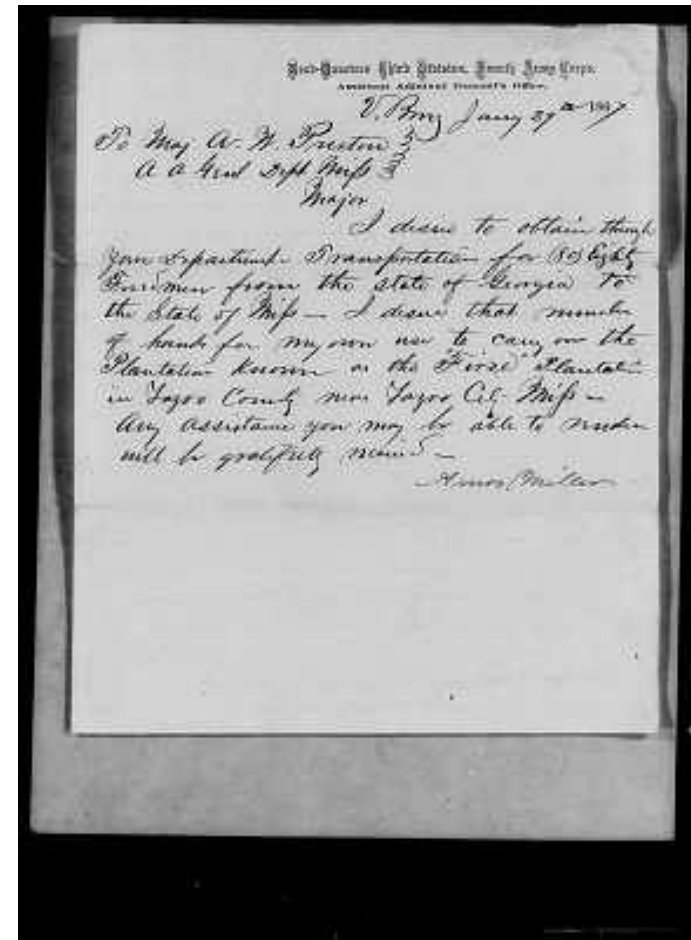 Head-Quarters Third Division, Fourth Army Corps.
Assistant Adjutant General's Office.
V. Burg Jany 1867
To Maj A. W. Preston
A A Genl Dept Miss
Major
I desire to obtain through
your Department Transportation for (80) Eighty
Freedmen from the state of Georgia to
the State of Miss — I desire that number
of hands for my own use to carry on the
Plantation Known as the "Plantation
in Yazoo County near Yazoo City Miss —
Any assistance you may be able to render
will be gratefully received —
Amos Miller